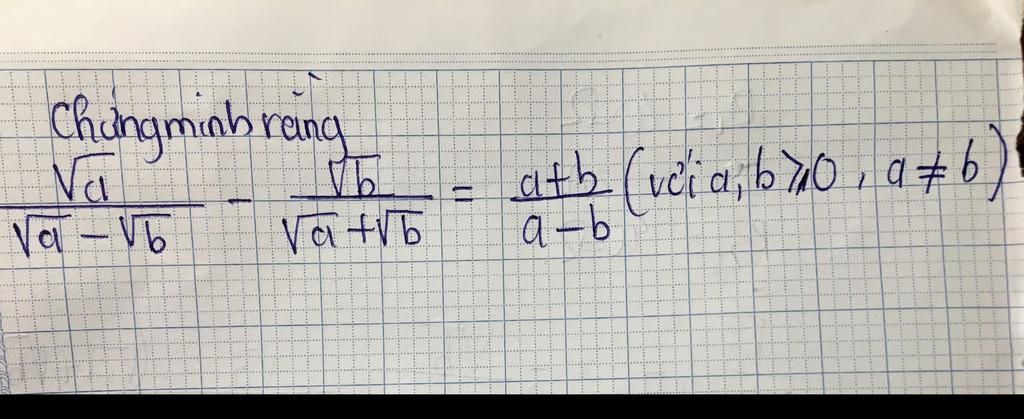 Chứng minh rằng
√a / (√a - √b) - √b / (√a + √b) = (a+b) / (a-b) (với a, b ⩾ 0, a ≠ b)